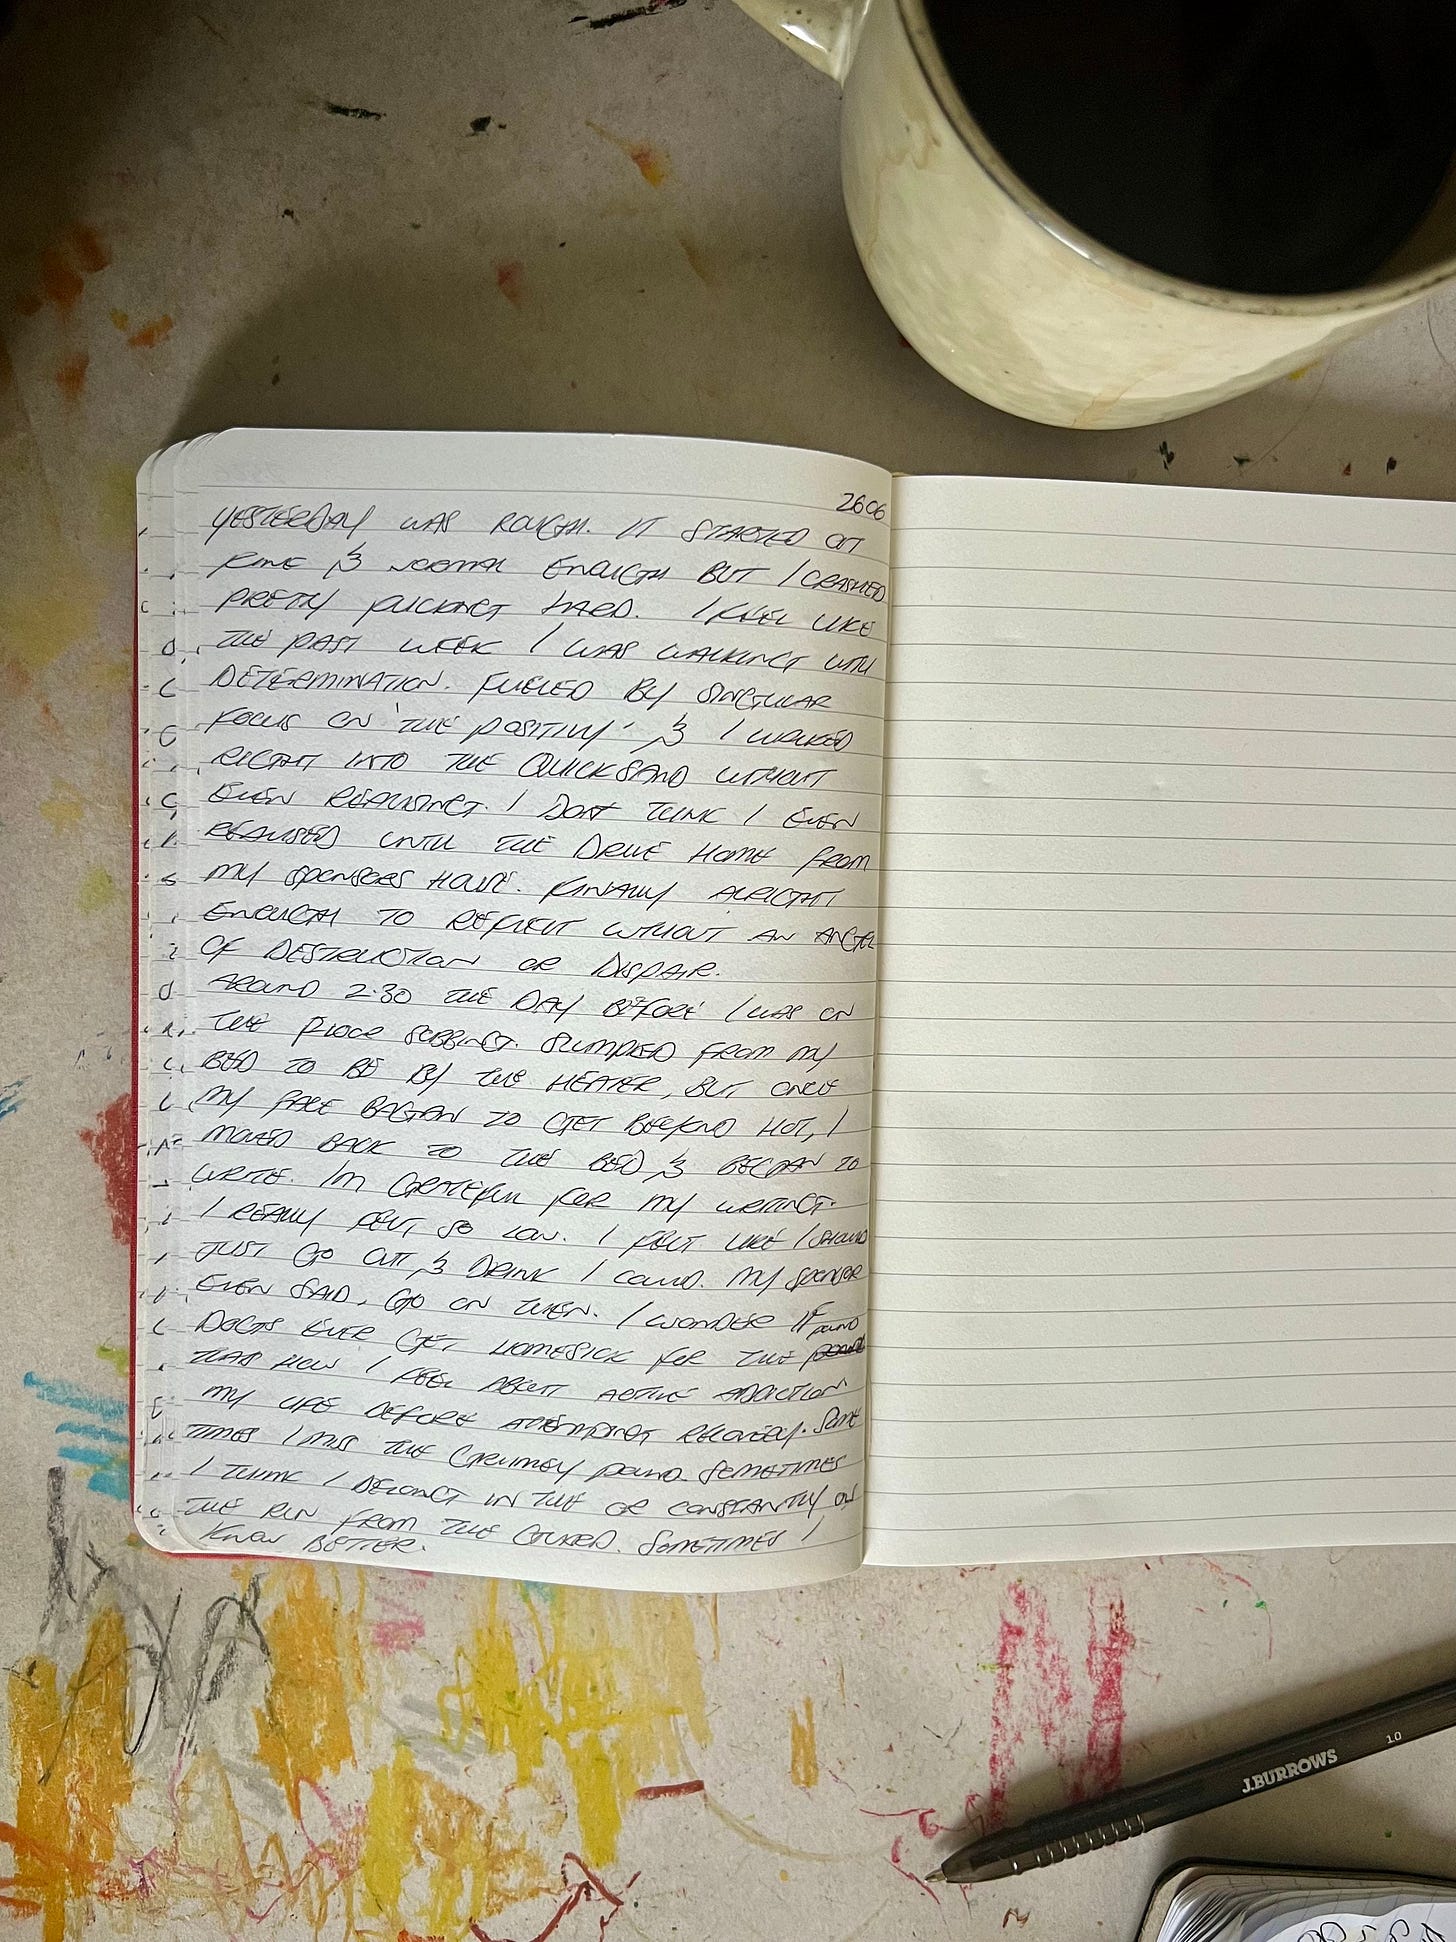 2606
YESTERDAY WAS ROUGH. IT STARTED OFF
FINE & NORMAL ENOUGH BUT I CRASHED
PRETTY FUCKING HARD. I FEEL LIKE
THE PAST WEEK I WAS WALKING WITH
DETERMINATION. FUELED BY SINGULAR
FOCUS ON 'THE POSITIVE' & I WALKED
RIGHT INTO THE QUICKSAND WITHOUT
EVEN REALISING. I DON'T THINK I EVEN
REALISED UNTIL THE DRIVE HOME FROM
MY SPONSERS HOUSE. FINALLY ALRIGHT
ENOUGH TO REFLECT WITHOUT AN ANGEL
OF DESTRUCTION OR DISPAIR.
AROUND 2:30 THE DAY BEFORE I WAS ON
THE FLOOR SOBBING. SLUMPED FROM MY
BED TO BE BY THE HEATER, BUT ONCE
MY FACE BAGAN TO GET BEYOND HOT, I
MOVED BACK TO THE BED & BEGAN TO
WRITE. IM GRATEFUL FOR MY WRITING.
I REALLY FELT SO LOW. I FELT LIKE I SHOULD
JUST GO OUT & DRINK I COULD. MY SPONSER
EVEN SAID, GO ON THEN. I WONDER IF
DOGS EVER GET HOMESICK FOR THE POUND
THAS HOW I FEEL ABOUT ACTIVE ADDICTION
MY LIFE BEFORE ATTEMPTING RECOVERY. SOME
TIMES I MISS THE GRIMEY POUND. SOMETIMES
I THINK I BELONG IN THE OR CONSTANTLY ON
THE RUN FROM THE GUARD. SOMETIMES I
KNOW BETTER.
J.BURROWS 1.0